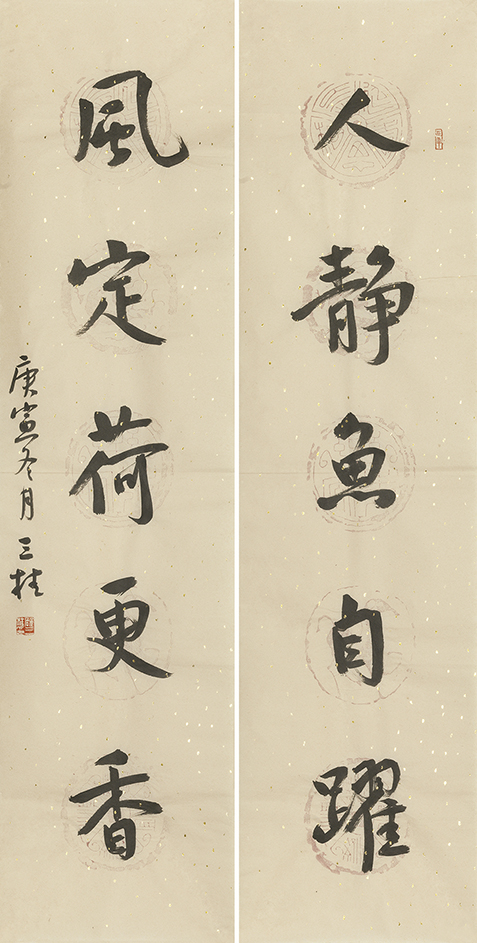 人靜魚自躍
風定荷更香
庚寅冬月三桂